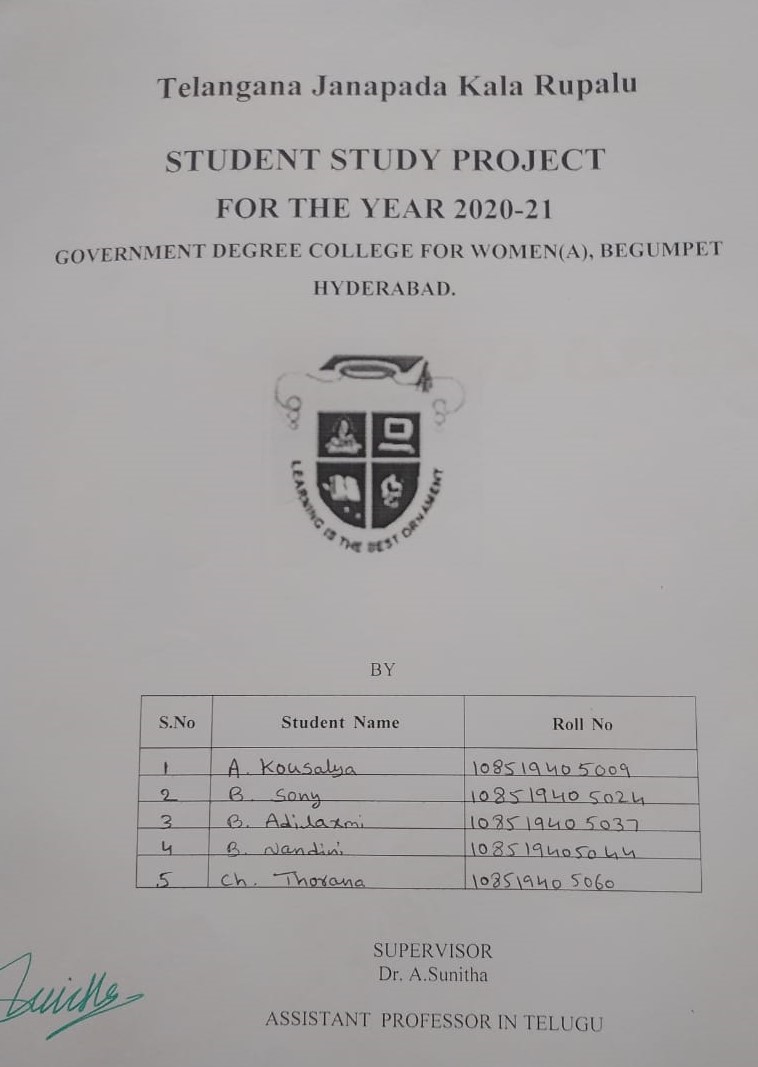 Telangana Janapada Kala Rupalu
STUDENT STUDY PROJECT
FOR THE YEAR 2020-21
GOVERNMENT DEGREE COLLEGE FOR WOMEN(A), BEGUMPET
HYDERABAD.
LEARNING IS THE BEST ORNAMENT
BY
S.No Student Name Roll No
1 A. Kousalya 108519405009
2 B. Sony 108519405024
3 B. Adilaxmi 108519405037
4 B. Nandini 108519405044
5 Ch. Thorana 108519405060
SUPERVISOR
Dr. A.Sunitha
ASSISTANT PROFESSOR IN TELUGU